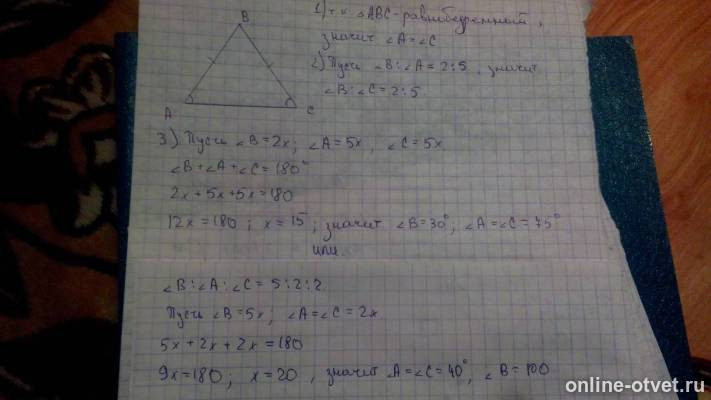 B
A
C
1) т.к. △ABC - равнобедренный,
значит ∠A=∠C
2) Пусть ∠B:∠A=2:5, значит
∠B:∠C=2:5
3) Пусть ∠B=2x; ∠A=5x, ∠C=5x
∠B+∠A+∠C=180°
2x+5x+5x=180
12x=180; x=15; значит ∠B=30°, ∠A=∠C=75°
или
∠B:∠A:∠C=5:2:2
Пусть ∠B=5x; ∠A=∠C=2x
5x+2x+2x=180
9x=180; x=20, значит ∠A=∠C=40°, ∠B=100
online-otvet.ru